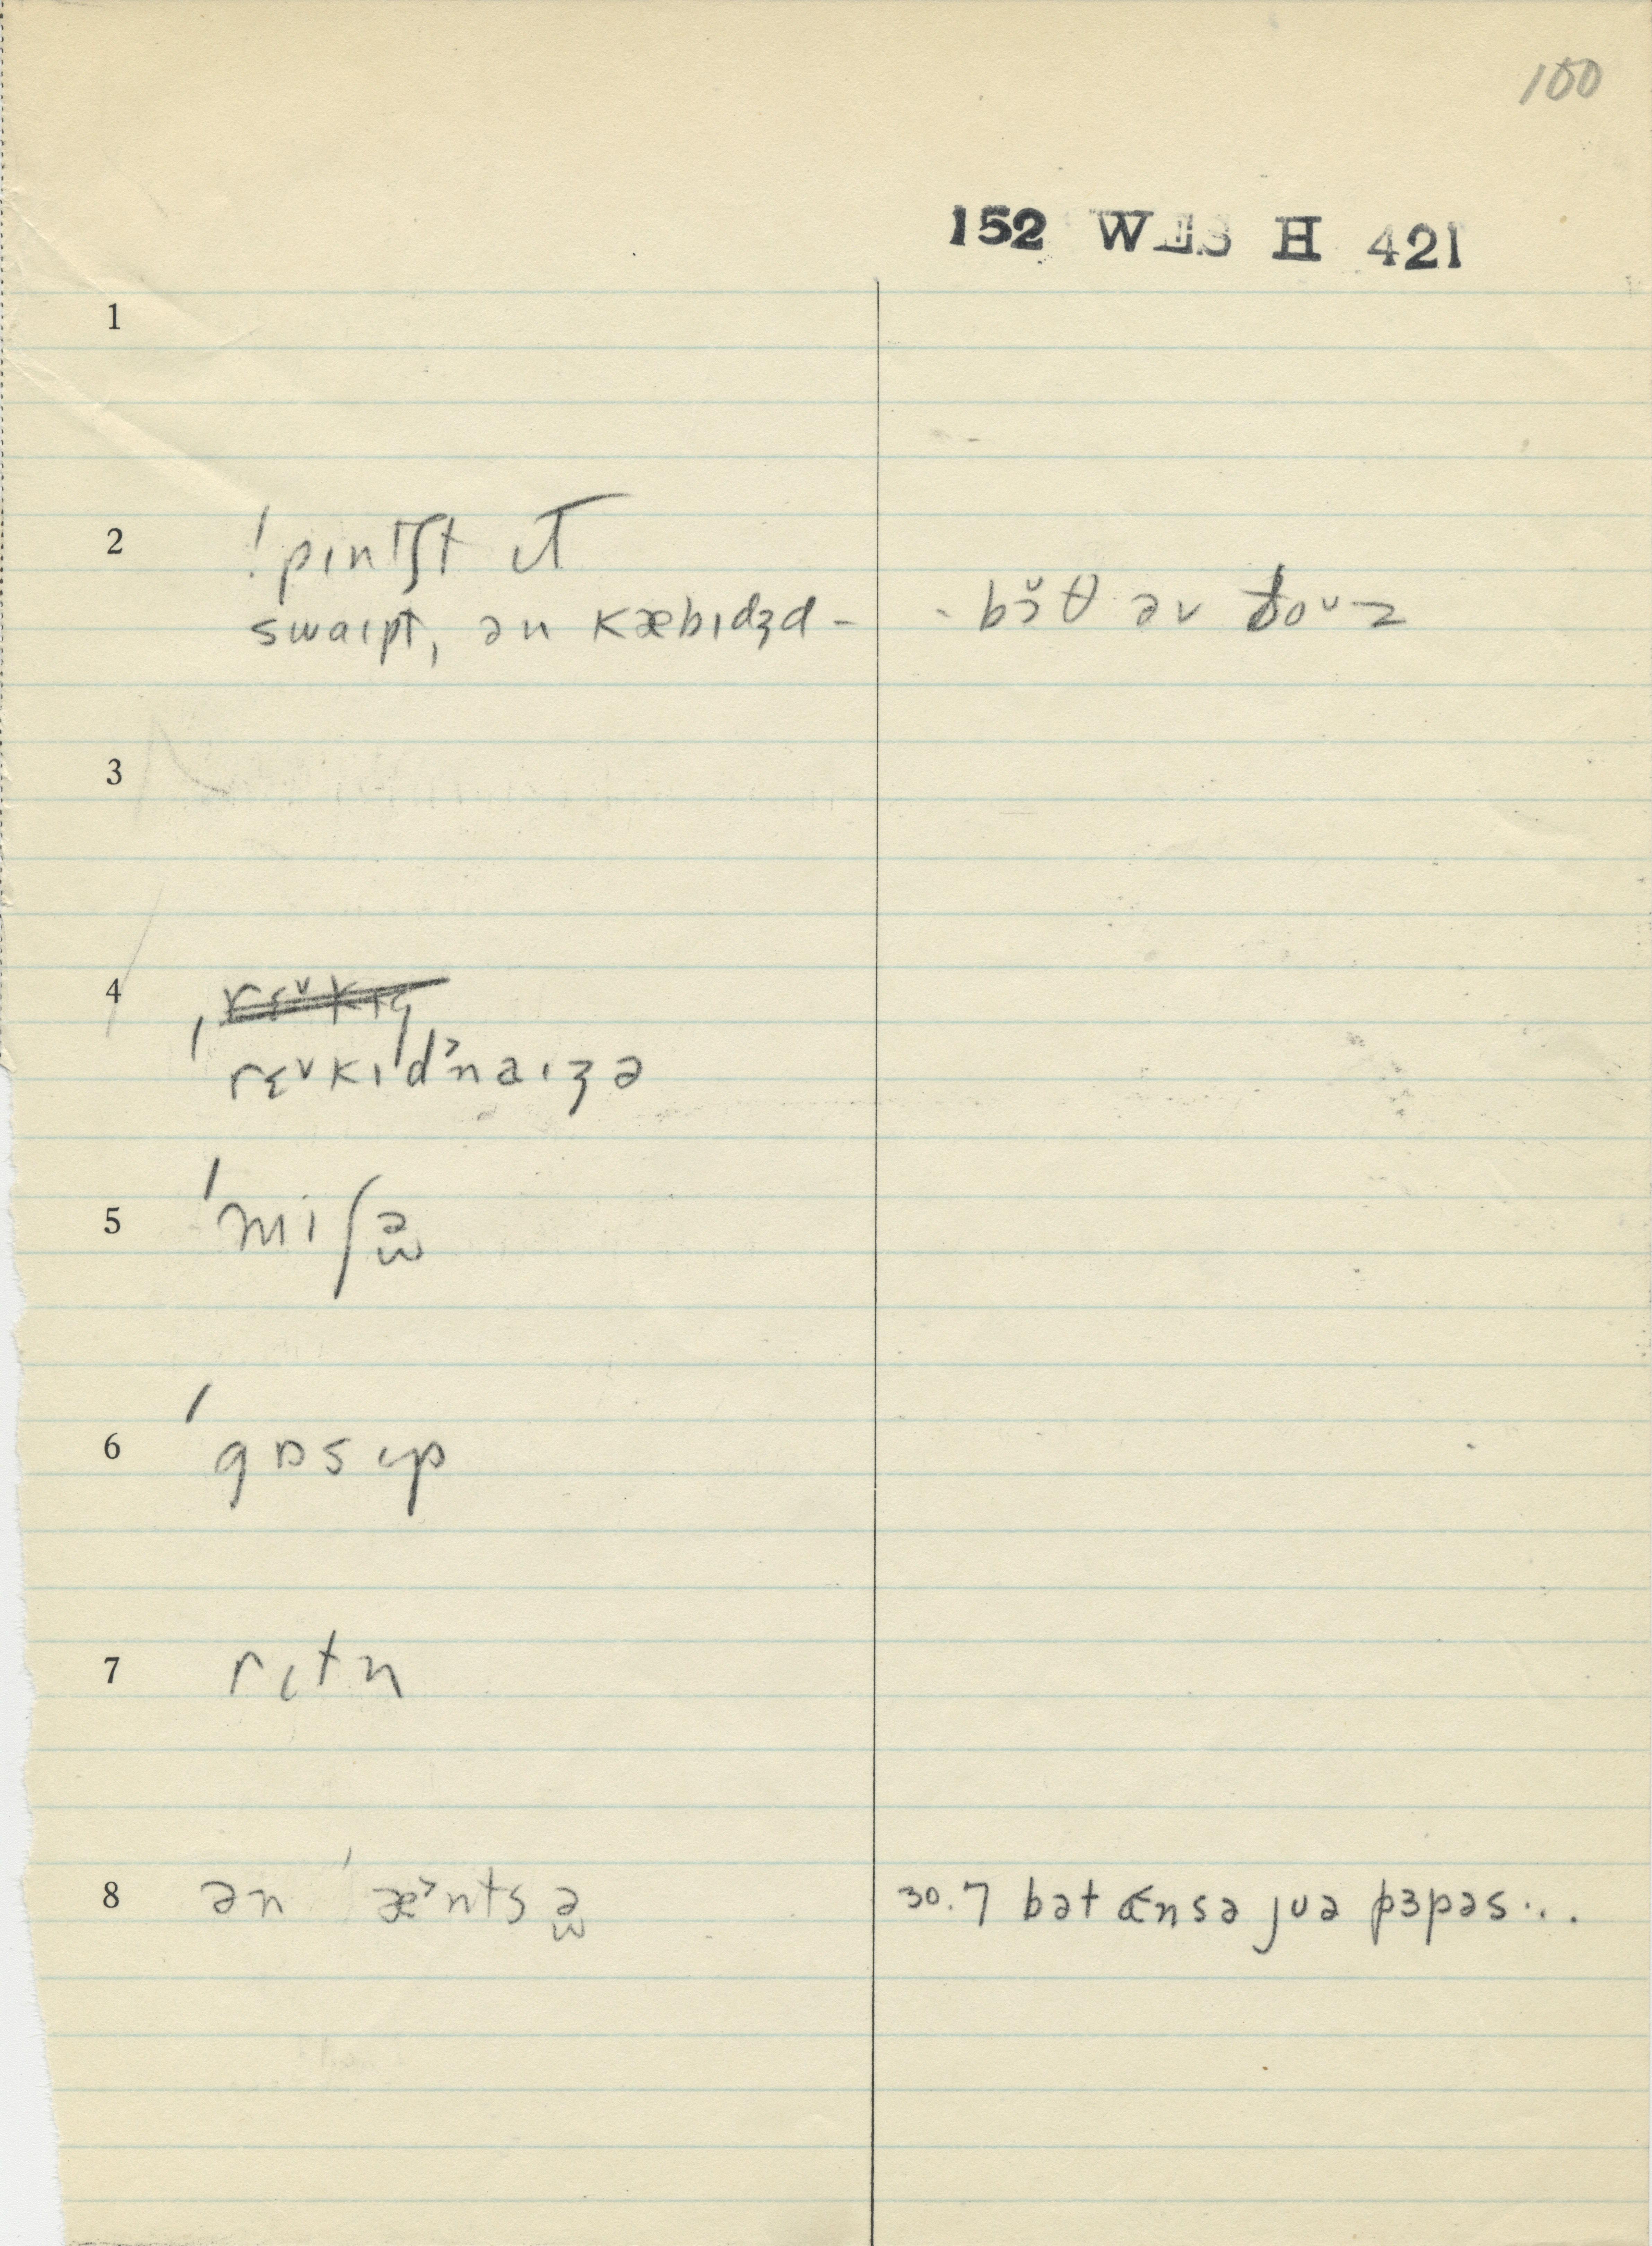 100
152 WES H 421
1
2 ! pɪnɪʃt ɪt
swaɪpt, ən kæbɪdʒd - - bɔ̌θ əv ðoᵛz
3
4
ˈrɛᵛkɪdᵊnaɪʒə
5 ˈmiʃə̫
6 ˈgɒsɪp
7 rɪtn
8 ən ˈæ˃ntsə̫ 30.7 bət ɑnsə jʊə pɜpəs...